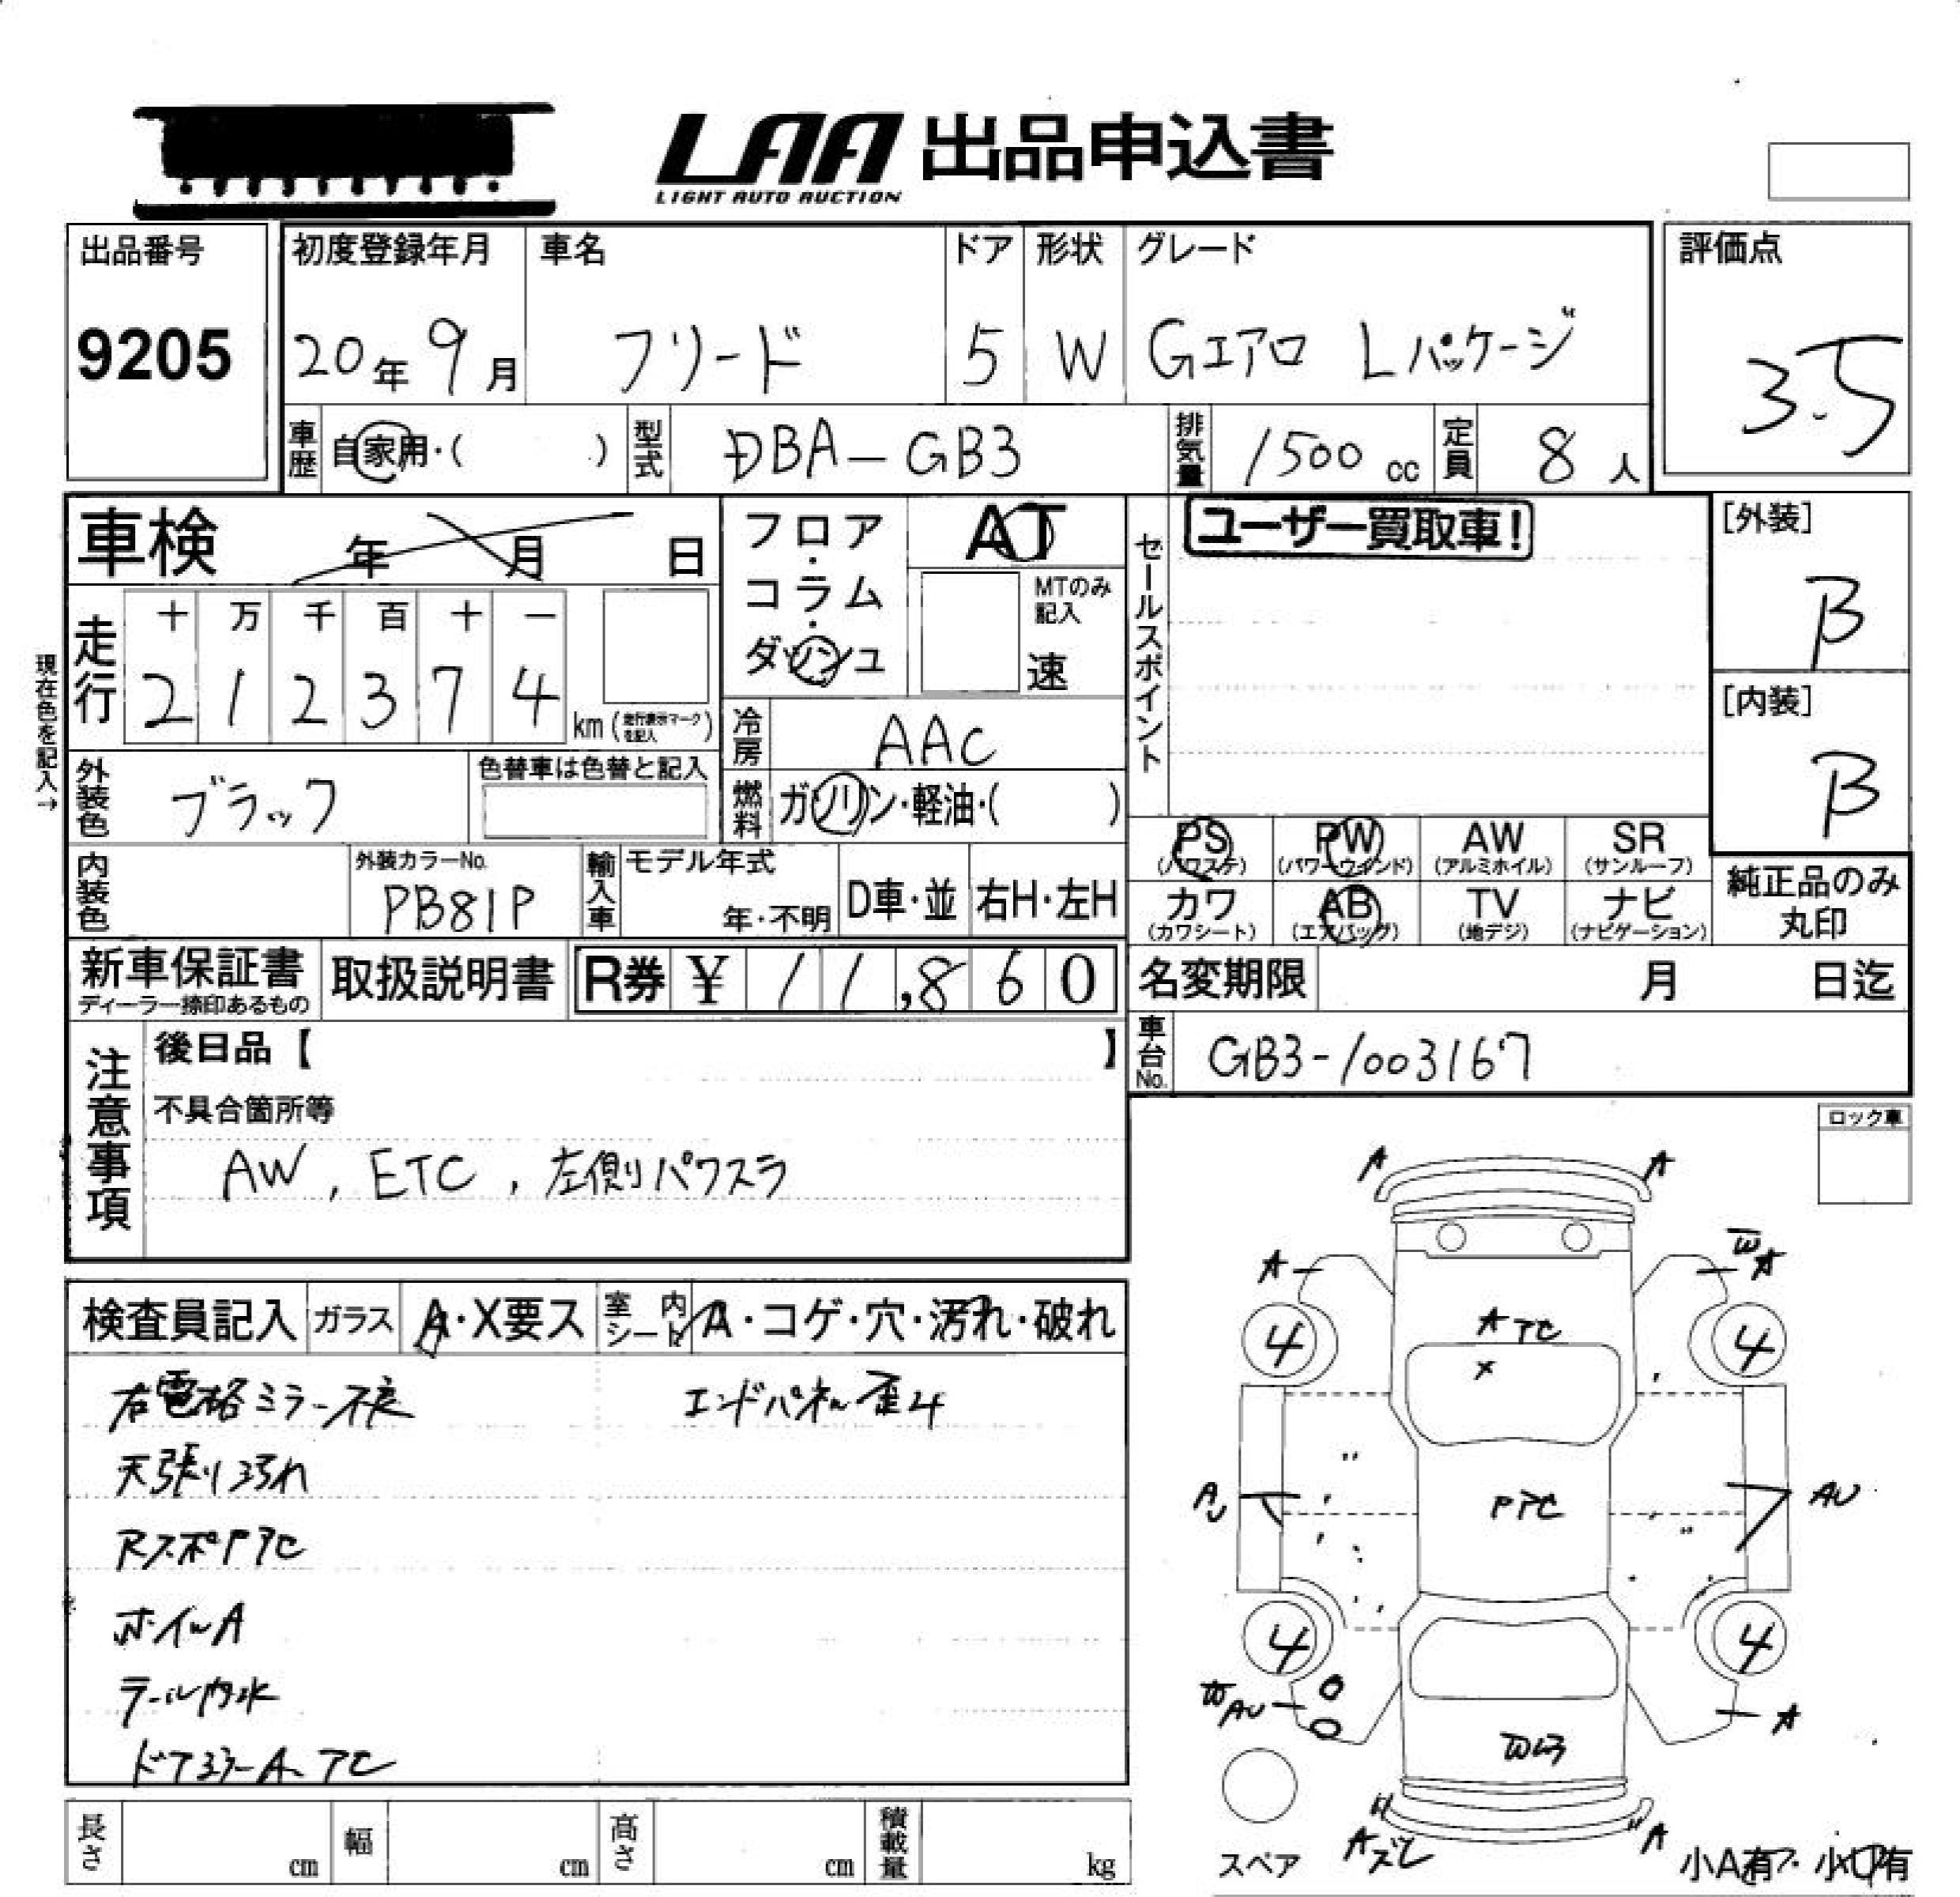 LAA 出品申込書
LIGHT AUTO AUCTION
出品番号
9205
初度登録年月
20年9月
車名
フリード
ドア
5
形状
W
グレード
Gエアロ Lパッケージ
評価点
3.5
車歴
自家用・( )
型式
DBA-GB3
排気量
1500 cc
定員
8 人
車検 年 月 日
フロア・コラム・ダッシュ
AT
MTのみ記入
速
セールスポイント
ユーザー買取車!
[外装]
B
[内装]
B
現在色を記入→
走行
十 万 千 百 十 一
2 1 2 3 7 4
km (走行表示マークを記入)
冷房
AAC
外装色
ブラック
色替車は色替と記入
燃料
ガソリン・軽油・( )
PS (パワステ)
PW (パワーウインド)
AW (アルミホイル)
SR (サンルーフ)
カワ (カワシート)
AB (エアバッグ)
TV (地デジ)
ナビ (ナビゲーション)
純正品のみ丸印
内装色
外装カラーNo.
PB81P
輸入車
モデル年式
年・不明
D車・並
右H・左H
新車保証書
ディーラー捺印あるもの
取扱説明書
R券 ¥ 11,860
名変期限 月 日迄
車台No.
GB3-1003167
注意事項
後日品【 】
不具合箇所等
AW, ETC, 左側パワスラ
ロック車
検査員記入
ガラス
A・X要ス
室内シート
A・コゲ・穴・汚れ・破れ
右電格ミラー不良 エンドパネル歪み
天張り汚れ
RスポPアC
ホイルA
テール内水
ドアミラーA アC
A A
A W A
A アC
4 4
X
A U PアC AU
4 4
W AU A
W
A ズレ A
スペア
小A有 小U有
長さ cm
幅 cm
高さ cm
積載量 kg